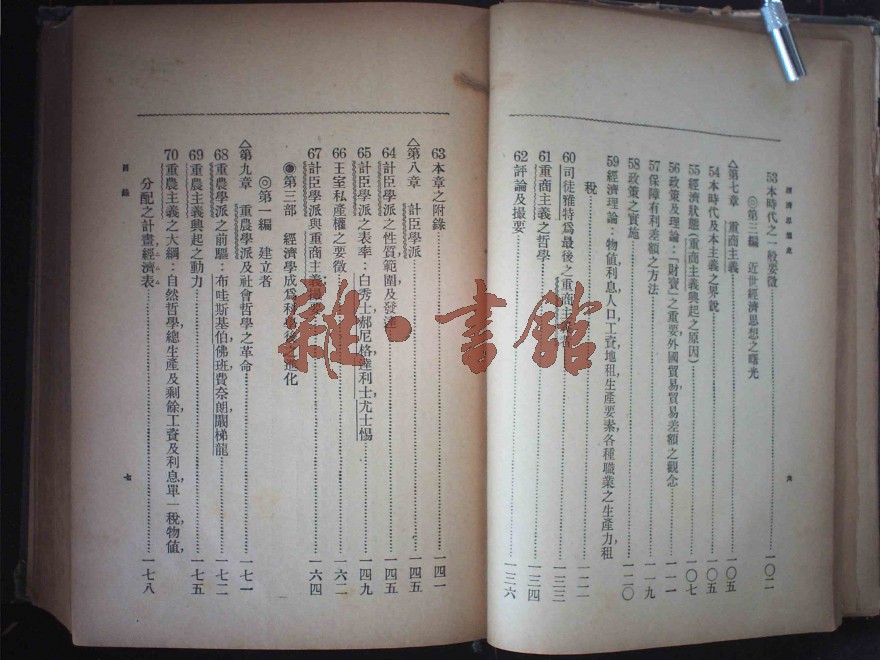 經濟思想史
53本時代之一般要徵……一〇二
◎第三編 近世經濟思想之曙光
△第七章 重商主義……一〇五
54本時代及本主義之界說……一〇五
55經濟狀態(重商主義興起之原因)……一〇七
56政策及理論:「財寶」之重要,外國貿易,貿易差額之觀念……一一一
57保障有利差額之方法……一一九
58政策之實施……一二〇
59經濟理論:物値,利息,人口,工資,地租,生產要素,各種職業之生產力,租
稅……一二一
60司徒雅特爲最後之重商主義者……一三三
61重商主義之哲學……一三四
62評論及撮要……一三六
六
63本章之附錄……一四一
△第八章 計臣學派……一四五
64計臣學派之性質,範圍及發達……一四五
65計臣學派之表率:白秀士,郝尼格,達利士,尤士惕……一四九
66王室私產權之要徵……一六二
67計臣學派與重商主義撮要……一六四
◉第三部 經濟學成爲科學後之進化
◎第一編 建立者
△第九章 重農學派及社會哲學之革命……一七一
68重農學派之前驅:布哇斯基伯,佛班,費奈朗,闞梯龍……一七二
69重農主義興起之動力……一七五
70重農主義之大綱:自然哲學,總生產及剩餘,工資及利息,單一稅,物値,
分配之計畫,經濟表……一七八
目錄
七
雜·書館